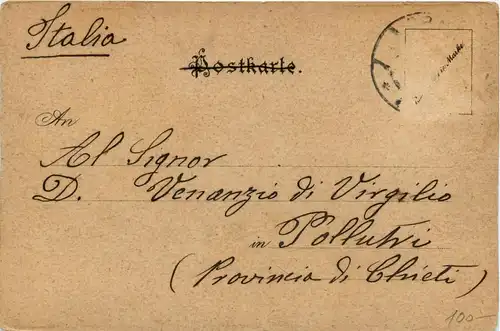 Italia
Postkarte.
An
Al Signor
D. Venanzio di Virgilio
in Pollutri
(Provincia di Chieti)
100-